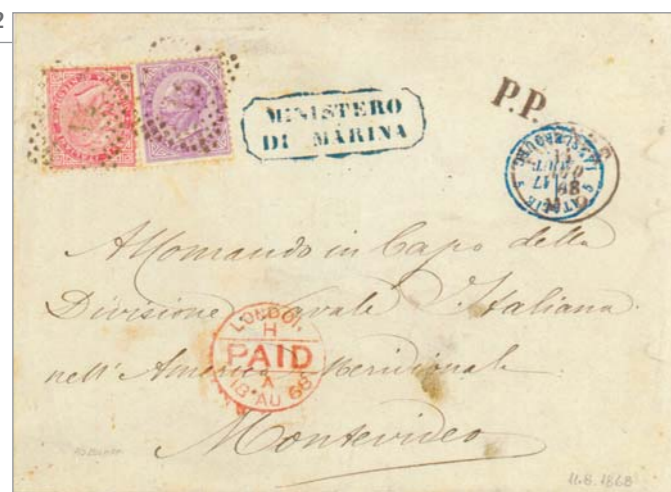 2
MINISTERO
DI MARINA
P.P.
Al Comando in Capo della
Divisione Navale Italiana
nell'America Meridionale
Montevideo
LONDON
H
PAID
A
18 AU 68
11.8.1868